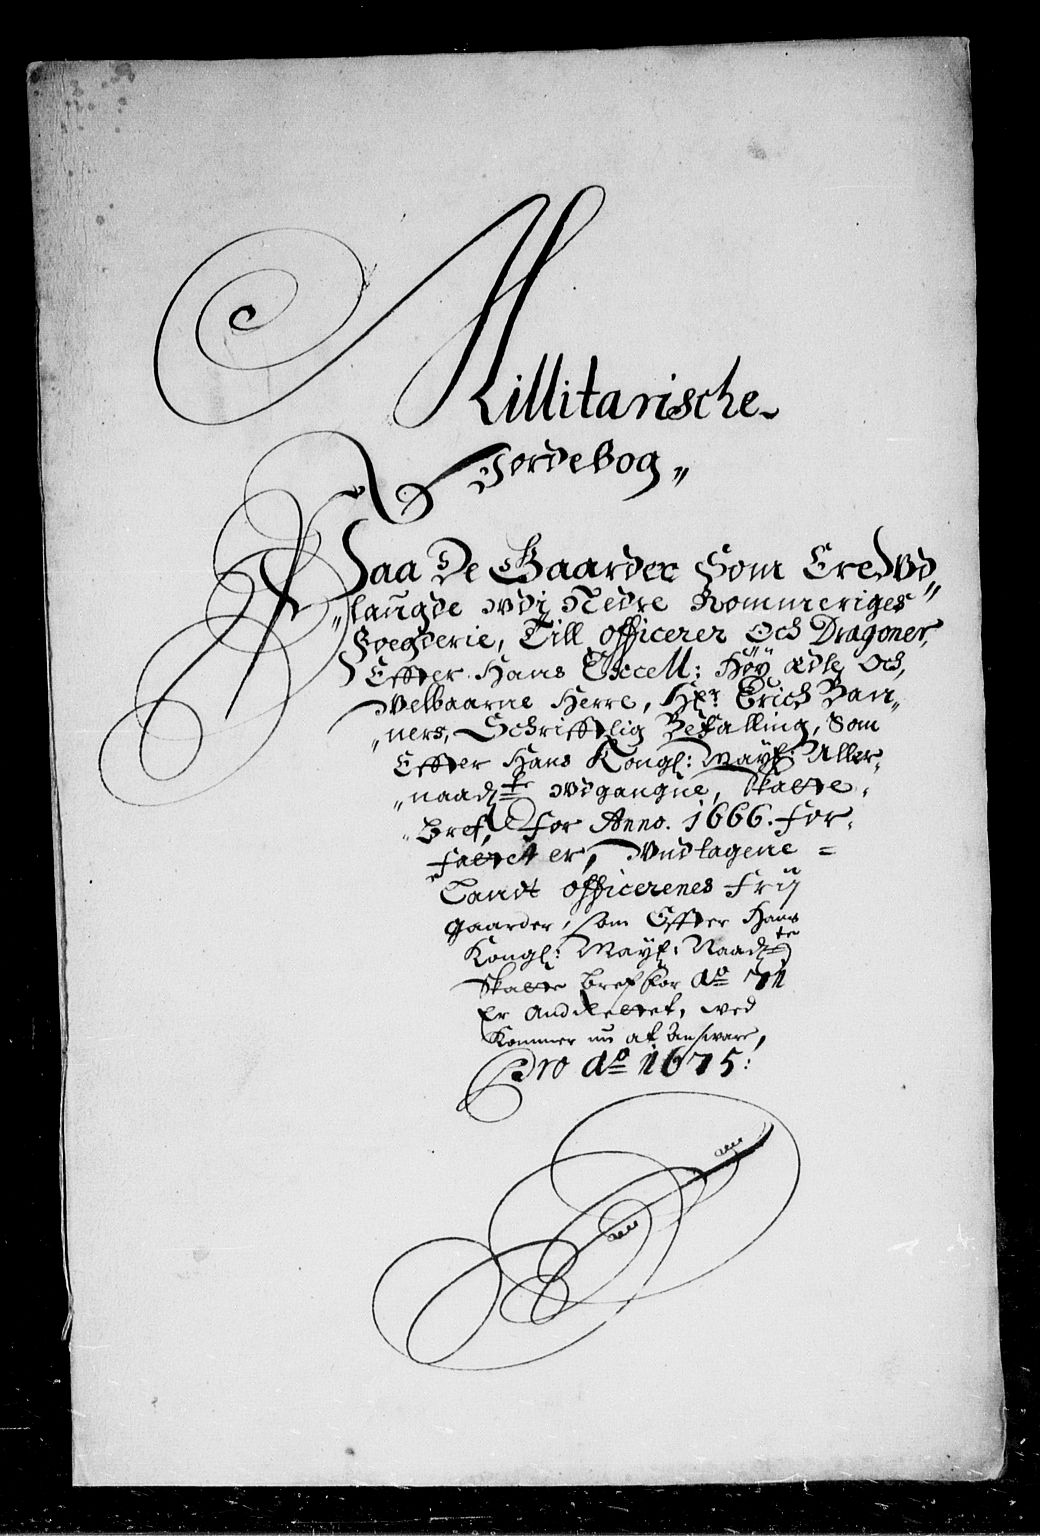 Millitarische
Jordebog„
Paa De Gaarder Som Ere Vd„
„laugde Vdj Nedre Rommeriges
Foegderie, Till officerer Och Dragoner,
Effter Hans Excell: Høÿ Edle Och,
Velbaarne Herre, Hr: Erich Ban„
„ners, Schrifftlig Befalling, Som
Effter Hans Kongl: Mayts: Aller„
„naadste Vdgangne, Skatte„
„Bref, For Anno. 1666. For„
„fattet er, Vndtagene =
Landt officerenes Frij
gaarder, som Effter Hans
Kongl: Mayts: Naadste
Skatte bref for Ao 71
Er and rettet, wed
Kommer nu at Answare,
Pro Ao 1675: